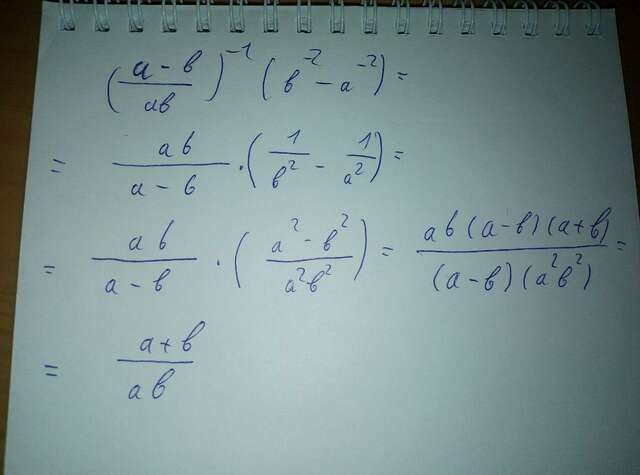 (\frac{a - b}{ab})^{-1} (b^{-2} - a^{-2}) =
= \frac{ab}{a - b} \cdot (\frac{1}{b^2} - \frac{1}{a^2}) =
= \frac{ab}{a - b} \cdot (\frac{a^2 - b^2}{a^2 b^2}) = \frac{ab(a-b)(a+b)}{(a-b)(a^2 b^2)} =
= \frac{a+b}{ab}